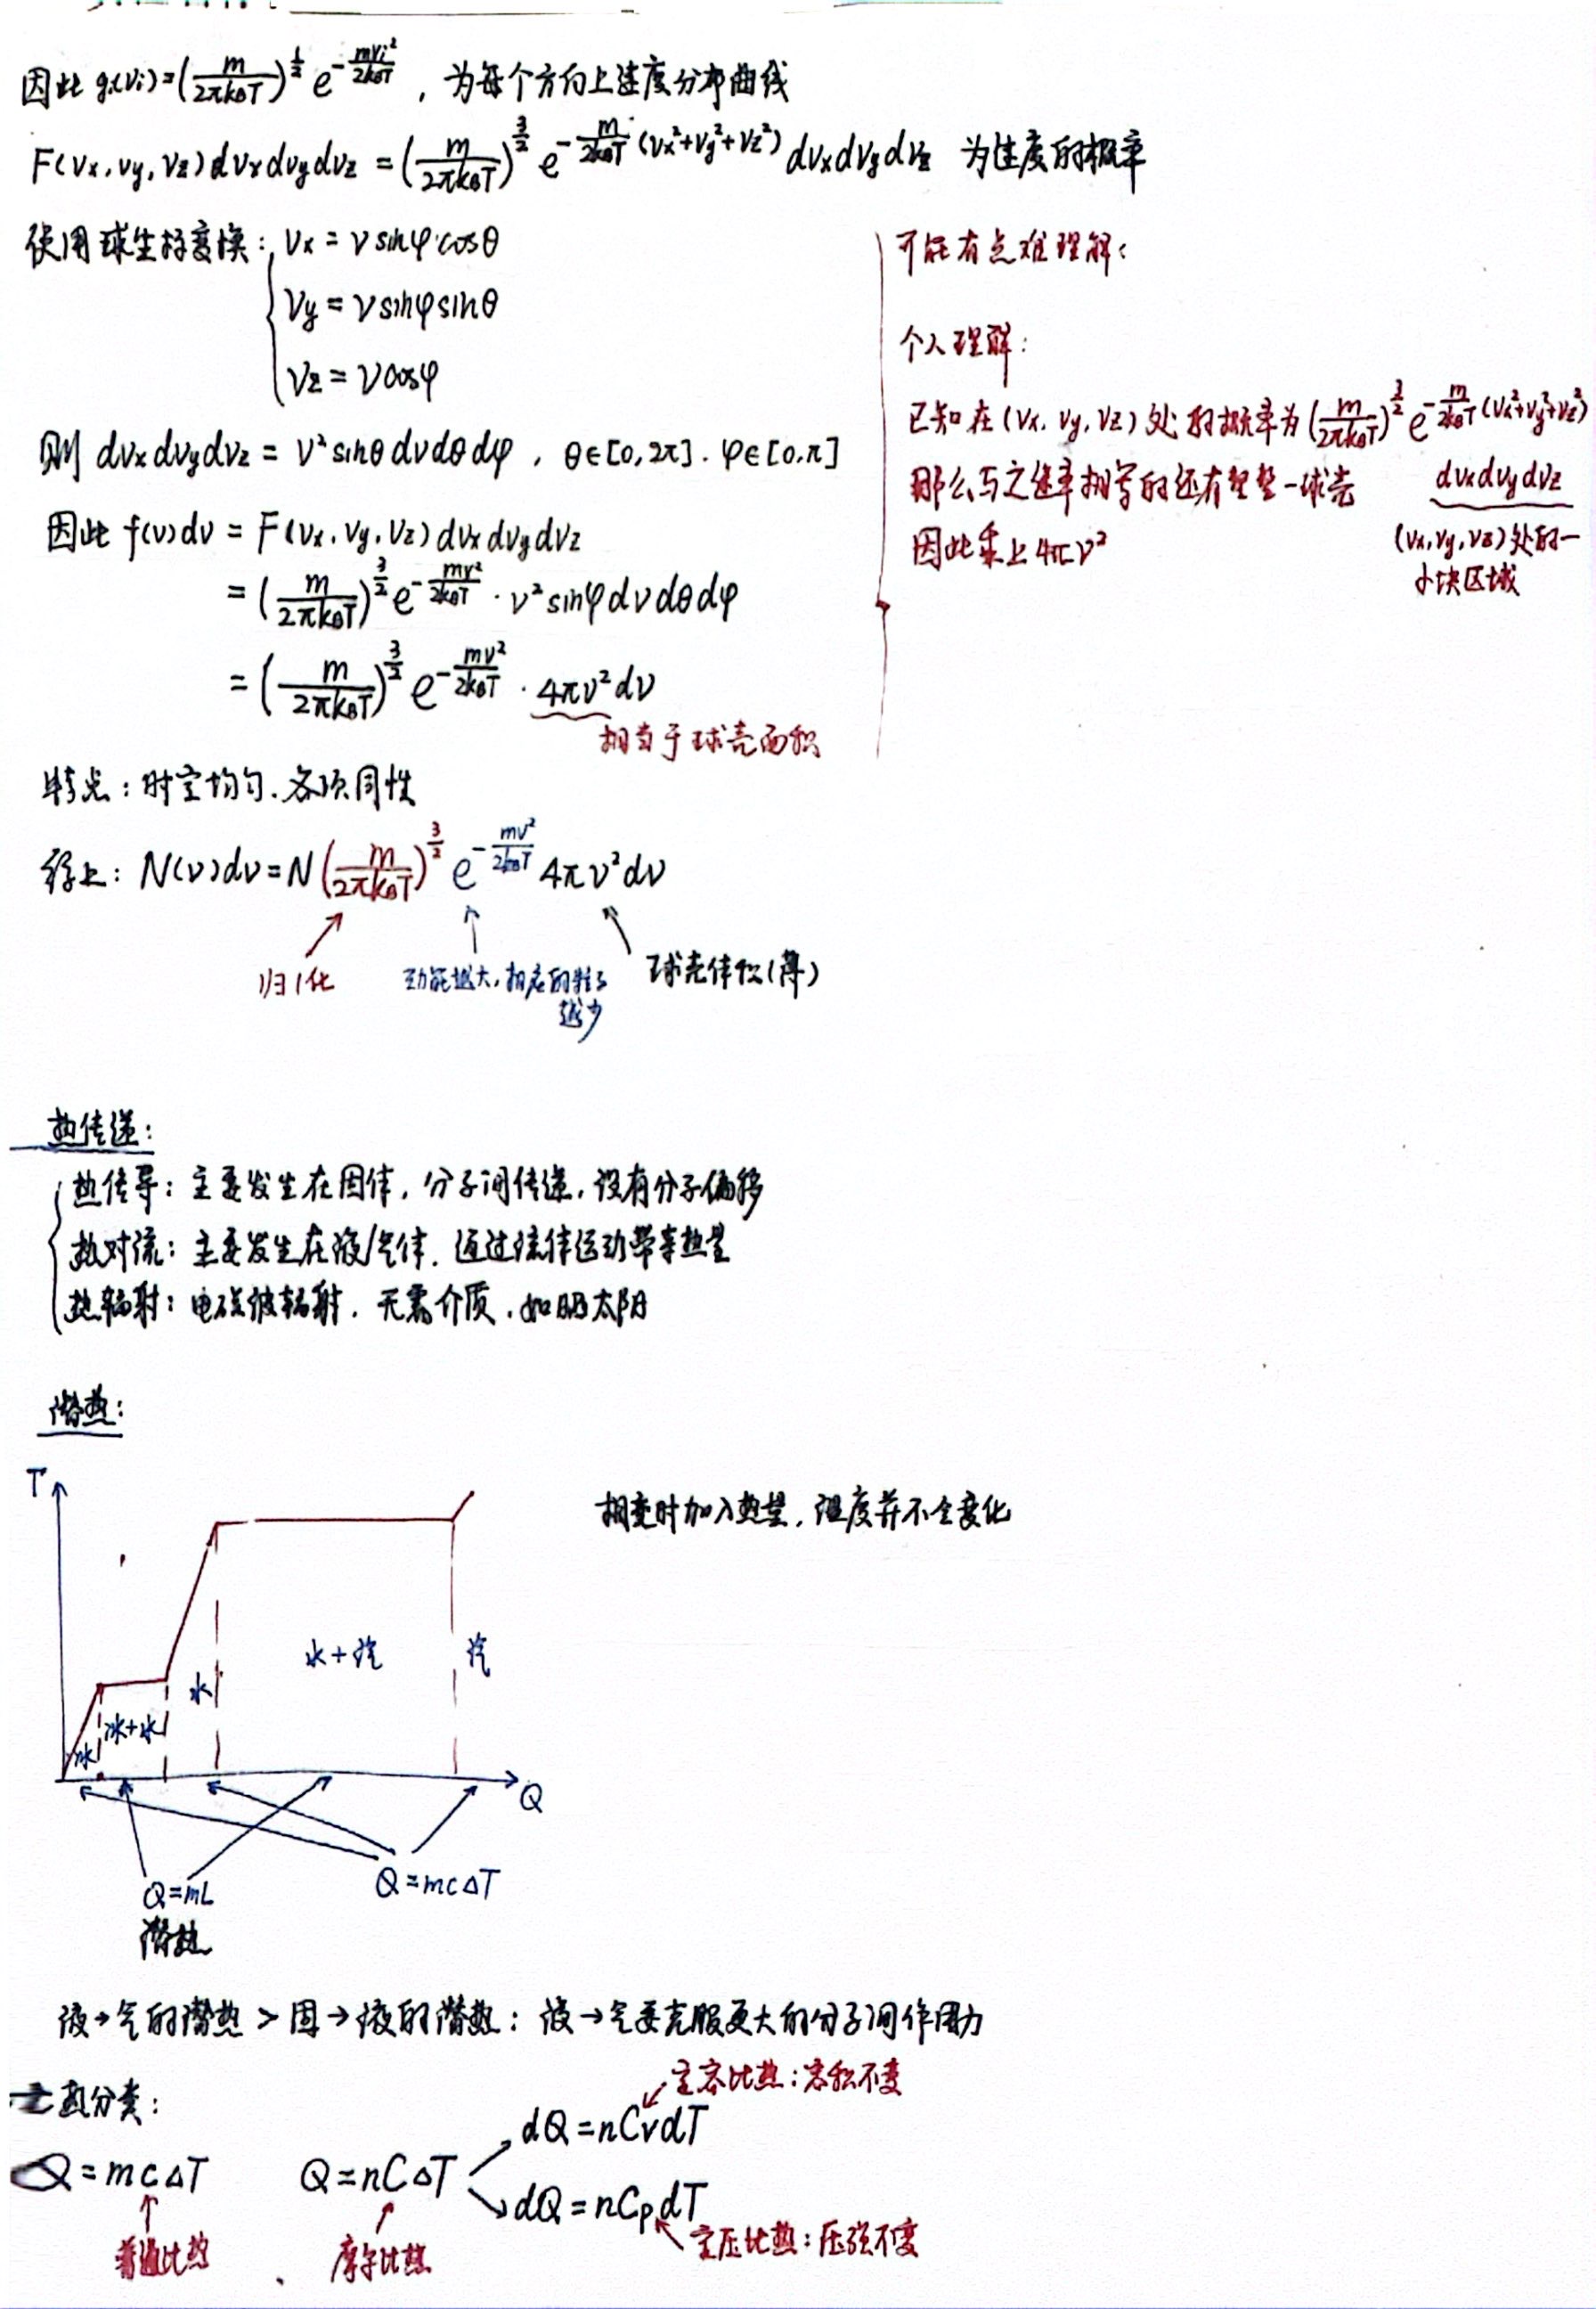 因此 g(vᵢ)=(m/2πk_BT)^(1/2) e^(-mvᵢ²/2k_BT) ，为每个方向上速度分布曲线
F(vx,vy,vz)dvxdvydvz = (m/2πk_BT)^(3/2) e^(-m/2k_BT (vx²+vy²+vz²)) dvxdvydvz 为速度的概率
使用球坐标变换：
vx = v sinφ cosθ
vy = v sinφ sinθ
vz = v cosφ
则 dvxdvydvz = v² sinθ dv dθ dφ ，θ∈[0,2π]．φ∈[0,π]
因此 f(v)dv = F(vx,vy,vz)dvxdvydvz
= (m/2πk_BT)^(3/2) e^(-mv²/2k_BT) · v² sinφ dv dθ dφ
= (m/2πk_BT)^(3/2) e^(-mv²/2k_BT) · 4πv²dv
相当于球壳面积
可能有点难理解：
个人理解：
已知在(vx,vy,vz)处的概率为(m/2πk_BT)^(3/2) e^(-m/2k_BT (vx²+vy²+vz²))
dvxdvydvz
(vx,vy,vz)处的一
小块区域
那么与之概率相等的还有整整一球壳
因此乘上4πv²
特点：时空均匀．各项同性
综上：N(v)dv=N(m/2πk_BT)^(3/2) e^(-mv²/2k_BT) 4πv²dv
归1化
动能越大，相应的粒子
越少
球壳体积(薄)
热传递：
热传导：主要发生在固体，分子间传递，没有分子偏移
热对流：主要发生在液/气体．通过流体运动带来热量
热辐射：电磁波辐射．无需介质．如晒太阳
潜热：
T
相变时加入热量，温度并不会变化
水+汽
汽
水
冰+水
冰
Q
Q=mL
潜热
Q=mcΔT
液→气的潜热 > 固→液的潜热：液→气要克服更大的分子间作用力
热分类：
Q=mcΔT
普通比热
Q=nCΔT
摩尔比热
定容比热：容积不变
dQ=nCvdT
dQ=nCpdT
定压比热：压强不变